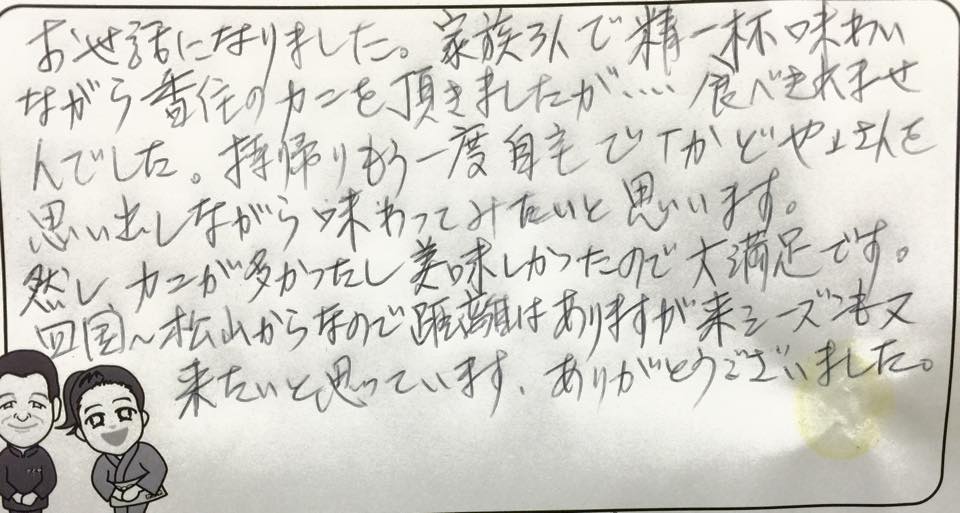 お世話になりました。家族3人で精一杯味わい
ながら香住のカニを頂きましたが....食べきれませ
んでした。持帰りもう一度自宅で「かどや」さんを
思い出しながら味わってみたいと思います。
然しカニが多かったし美味しかったので大満足です。
四国～松山からなので距離はありますが来シーズンも又
来たいと思っています、ありがとうございました。